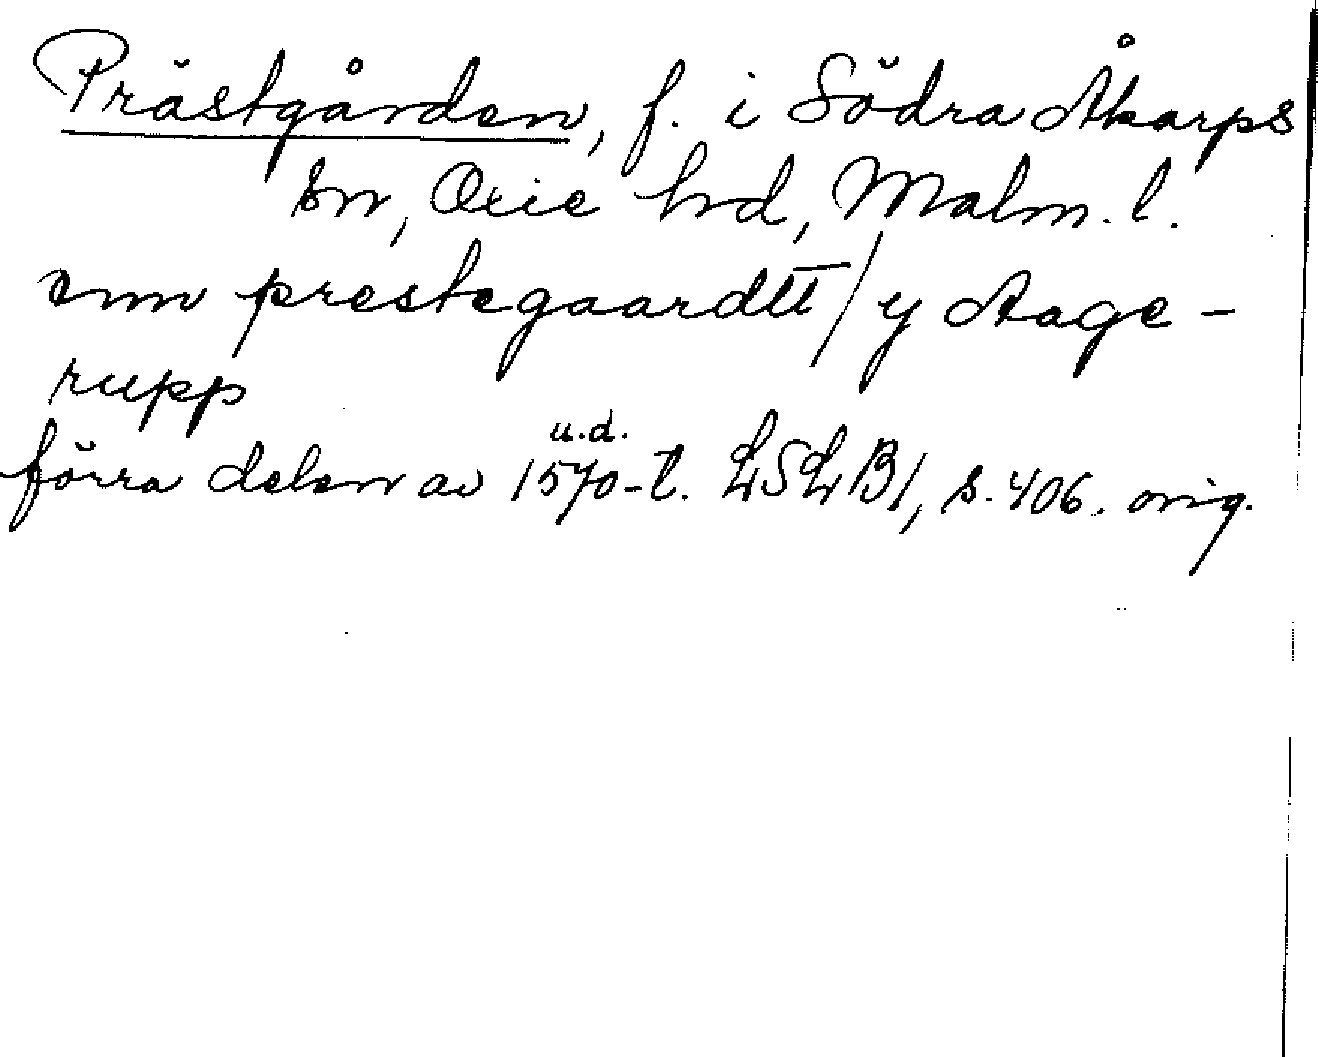 Prästgården, f. i Södra Åkarps
sn, Oxie hrd, Malm. l.
enn prestegaardtt / y Aage-
rupp
u.d.
förra delen av 1570-t. LSLB1, s. 406. orig.